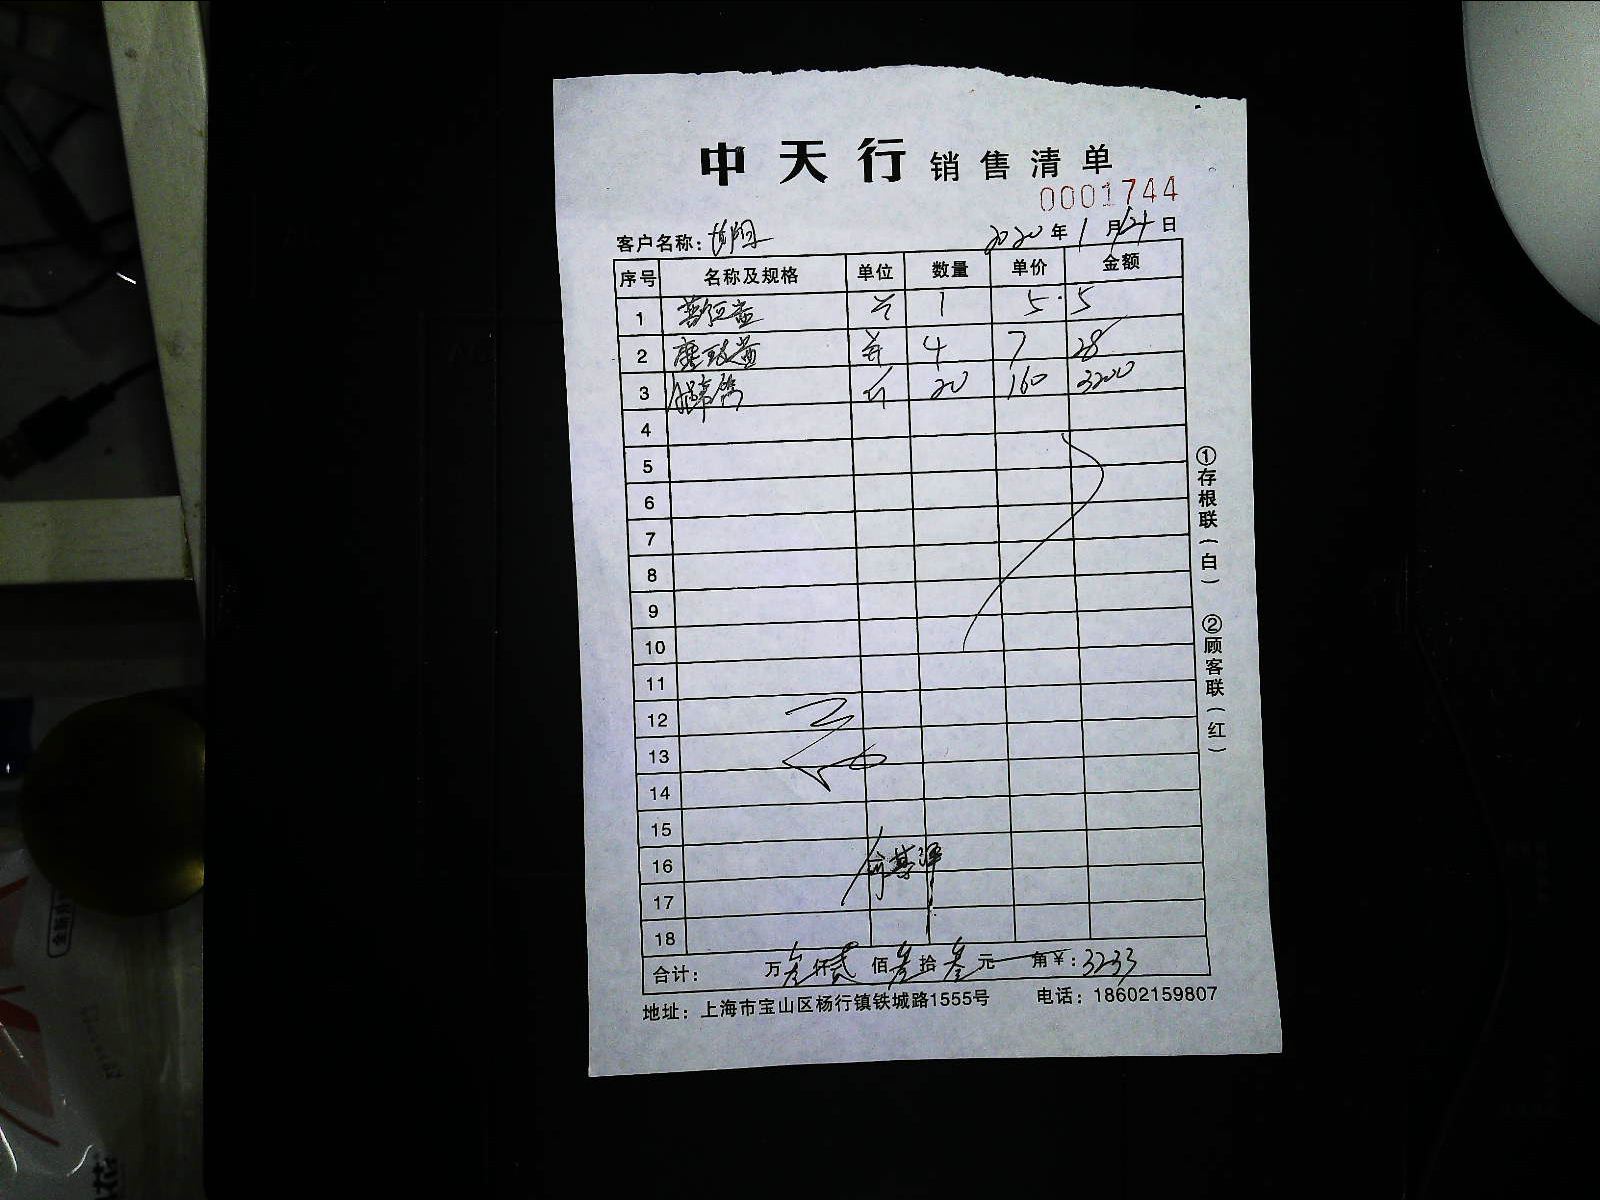 中天行 销售清单
0001744
客户名称:
2020年1月24日
序号 名称及规格 单位 数量 单价 金额
1 1 5 5
2 4 7 28
3 20 160 3200
4
5
6
7
8
9
10
11
12
13
14
15
16
17
18
合计: 万叁仟贰佰叁拾叁元 角¥:3233
地址:上海市宝山区杨行镇铁城路1555号 电话:18602159807
①存根联(白) ②顾客联(红)